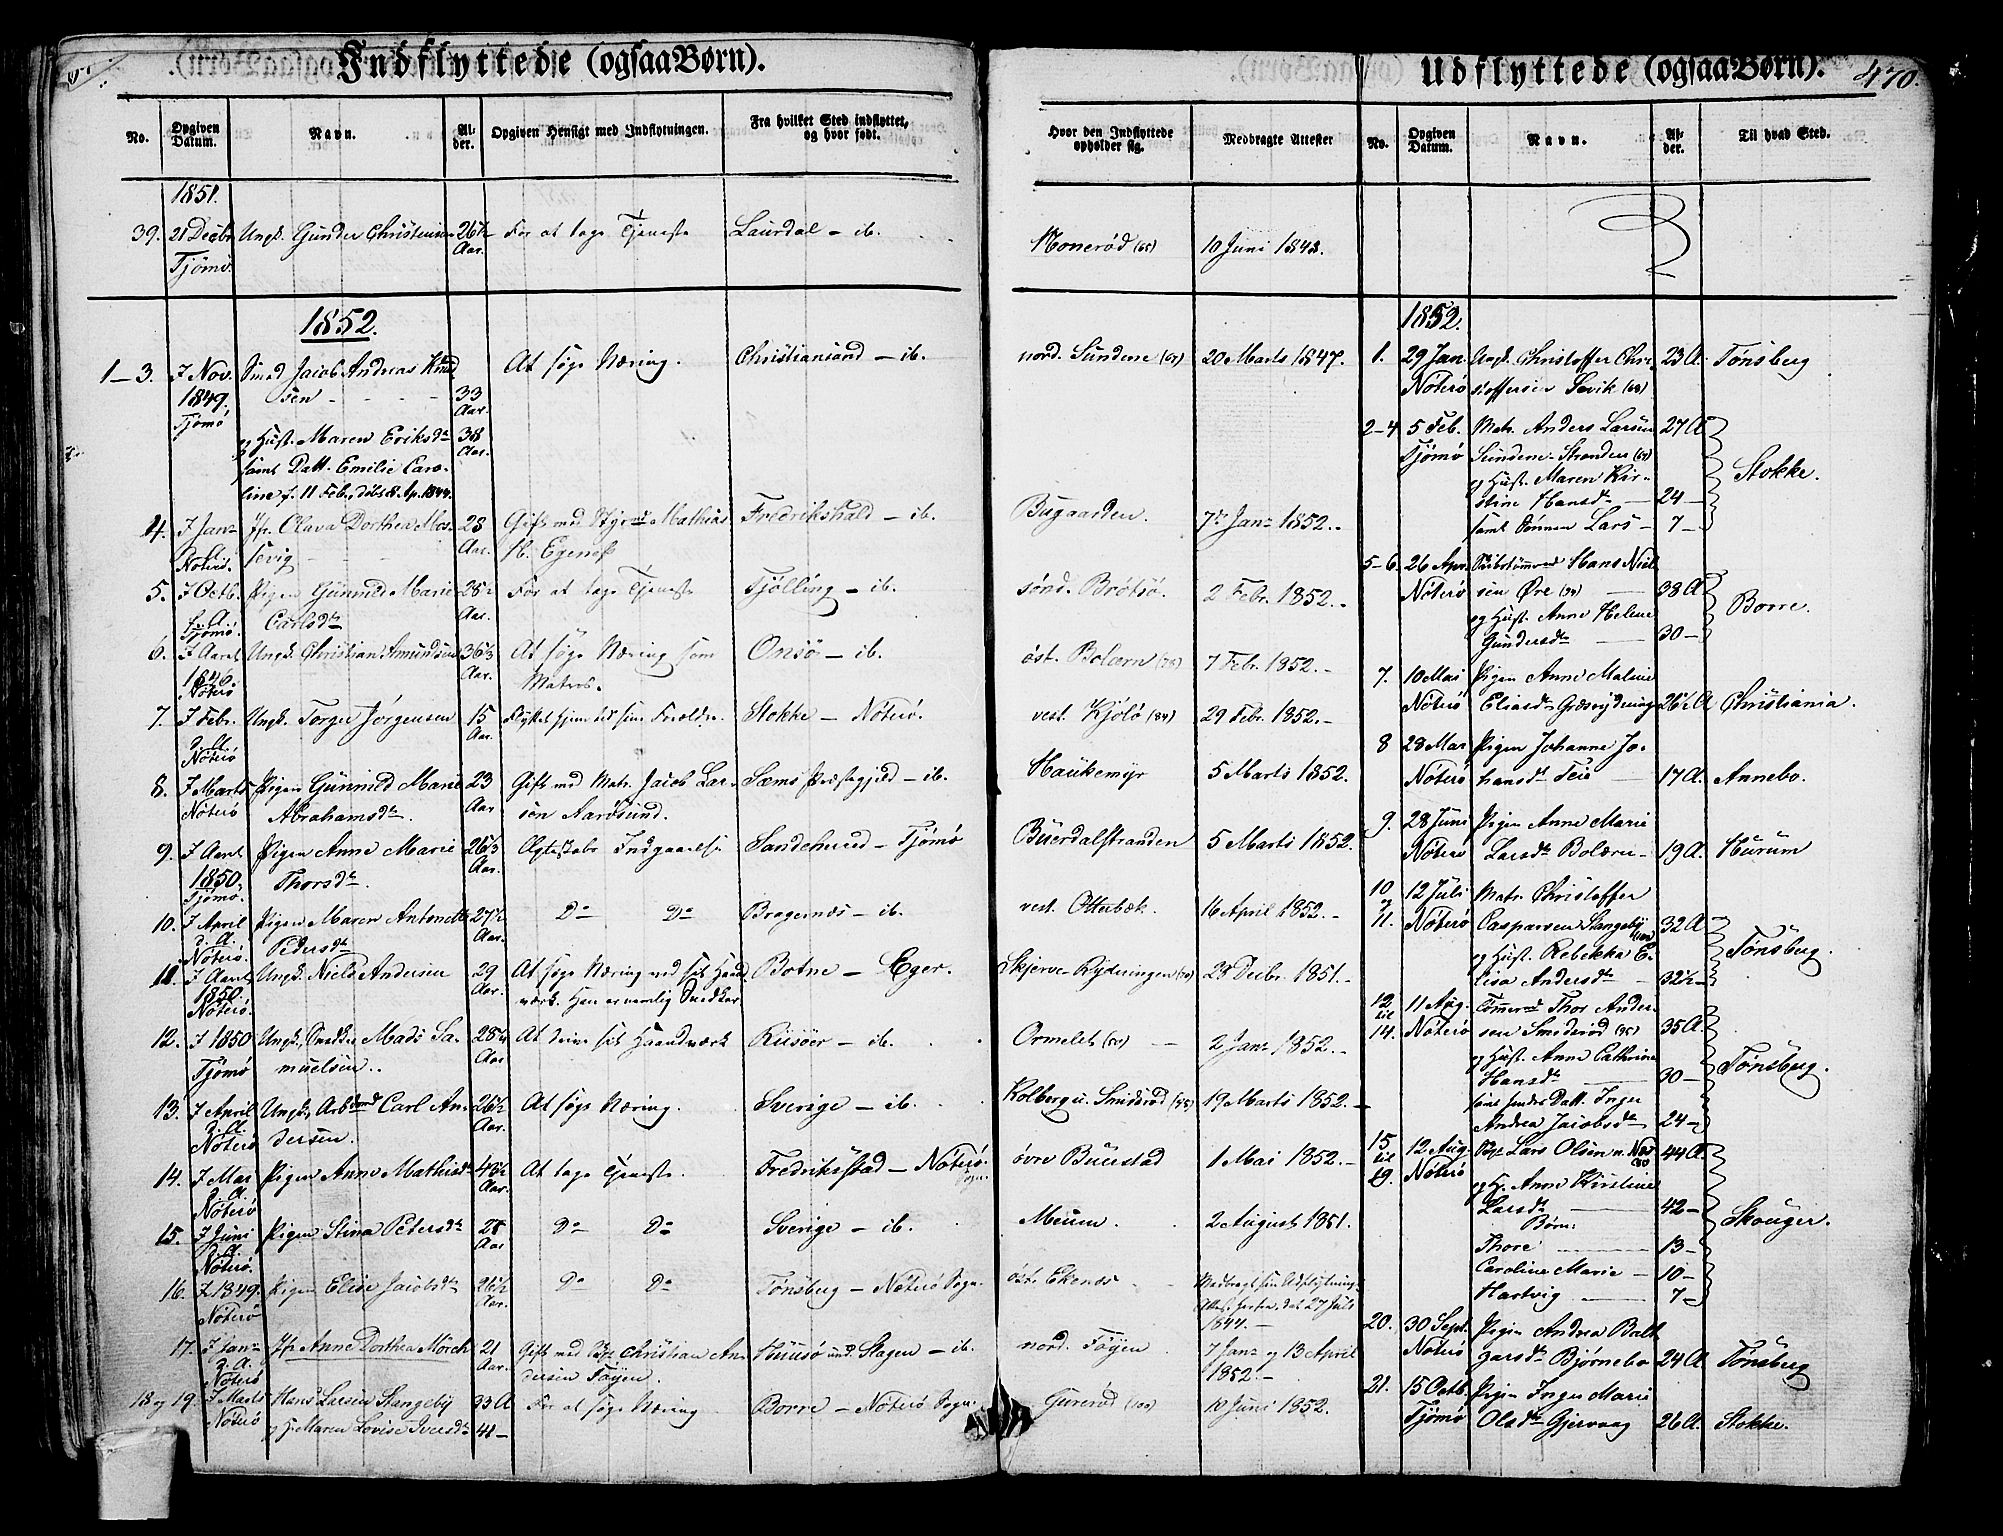 Indflyttede (ogsaa Børn).
No. | Opgiven Datum. | Navn. | Alder. | Opgiven Hensigt med Indflytningen. | Fra hvilket Sted indflyttet, og hvor født. | Hvor den Indflyttede opholder sig. | Medbragte Attester
1851.
39. | 21 Decbr Tjömö. | Ungk. Gunder Christensen | 26½ Aar. | For at tage Tjeneste | Laurdal – ib. | Nonerød (65) | 10 Juni 1843.
1852.
1–3. | I Nov. 1849. Tjömö | Smed Jacob Andreas Knudsen | 33 Aar. | At søge Næring. | Christiansand – ib. | nord. Sundene (61) | 20 Marts 1847.
og Hust. Maren Eriksdtr | 38 Aar.
samt Datt. Emilie Caroline f. 11 Feb., døbt 8. Ap. 1844.
4. | I Janr d. A. Noterö. | Jfr. Olava Dorthea Mossevig | 28 Aar. | Gift med Styrmd Mathias H. Egenes | Fredrikshald – ib. | Bugaarden. | 7de Janr 1852.
5. | I Octb. f. A. Tjömö. | Pigen Gunnild Marie Carlsdtr | 28½ Aar. | For at tage Tjeneste | Tjølling – ib. | sönd. Brötsö. | 2 Febr. 1852.
6. | I Aaret 1846. Nöterö | Ungk. Christian Amundsen | 36⅓ Aar. | At søge Næring som Matros. | Onsö – ib. | öst. Bolærn (75) | 7 Febr. 1852.
7. | I Febr. d. A. Nöterö | Ungk. Torger Jörgensen | 15 Aar. | Flyttet hjem til sine Forældre. | Stokke – Nöterö. | vest. Kjölö (84) | 29 Febr. 1852.
8. | I Marts Nöterö | Pigen Gunnild Marie Abrahamsdtr. | 23 Aar | Gift med Matr. Jacob Larsön Aarösund. | Sæms Præstegjeld – ib. | Haukemyr | 5 Marts 1852.
9. | I Aaret 1850. Tjömö. | Pigen Anne Marie Thorsdtr. | 26⅓ Aar. | Ægteskabs Indgaaelse | Sandeherred – Tjömö | Buerdalstranden | 5 Marts 1852.
10. | I April d. A. Nöterö. | Pigen Maren Antonette Pedersdtr | 27½ Aar. | Do Do | Bragernæs – ib. | vest. Otterbæk. | 16 April 1852.
11. | I Aaret 1850. Nöterö. | Ungk. Niels Andersen | 29 Aar. | At søge Næring ved sit Haandværk. Han er nemlig Snedker | Botne – Eger. | Skjerve-Rydningen (70) | 28 Decbr. 1851.
12. | I 1850 Tjömö | Ungk. Snedker Mads Samuelsen. | 28¼ Aar | At drive sit Haandværk | Riisöer – ib. | Ormelet (50) | 2 Janr 1852.
13. | I April d. A. Nöterö | Ungk. Arbmd Carl Andersen. | 26½ Aar. | At søge Næring. | Sverige – ib. | Kolberg u. Smidsröd (95) | 19 Marts 1852.
14. | I Mai d. A. Nöterö | Pigen Anne Mathisdtr | 48½ Aar. | At tage Tjeneste. | Fredriksstad – Nöterö Sogn. | övre Buerstad | 1 Mai 1852.
15. | I Juni d. A. Nöterö. | Pigen Stina Petersdtr | 28 Aar | Do Do | Sverige – ib. | Meum. | 2 August 1851.
16. | I 1849. Nöterö | Pigen Elise Jacobsdtr | 26½ Aar. | Do Do | Tønsberg – Nöterö Sogn. | öst. Ekenæs | Medbragt sin Udflytnings-Attest herfra, dat. 27 Juli 1844.
17. | I Janr d. A. Nöterö | Jfr. Anne Dorthea Mörch | 21 Aar. | Gift med Christian Andersen Föyen. | Huusö und. Slagen – ib. | nord. Föyen | 7 Janr og 13 April 1852.
18 og 19. | I Marts Nöterö | Hans Larsen Stangeby | 33 A | For at søge Næring | Borre – Nöterö Sogn. | Gureröd (100) | 10 Juni 1852.
og H. Maren Lovise Iversdtr | 41 –
Udflyttede (ogsaa Børn). 470.
No. | Opgiven Datum. | Navn. | Alder. | Til hvad Sted.
1852.
1. | 29 Jan. Nöterö | Ungk. Christoffer Christoffersen Levik (68) | 23 A. | Tønsberg
2–4 | 5 Feb. Tjömö | Matr. Anders Larsen Sundene-Stranden (61) | 27 A | Stokke.
og Hust. Maren Kirstine Hansdtr | 24 –
samt Sönnen Lars – | 7 –
5–6. | 26 Apr. Nöterö | Skibstömmermd Hans Nielsen Øre (34) | 38 A | Borre.
og Hust. Anne Helene Gundersdtr | 30 –
7. | 10 Mai Nöterö | Pigen Anne Maline Eliasdtr Græsrydning | 26½ A | Christiania.
8 | 28 Mai Nöterö | Pigen Johanne Johansdtr Teie | 17 A. | Annebo.
9. | 28 Juni Nöterö | Pigen Anne Marie Larsdtr Bolærn | 19 A. | Hurum
10 og 11. | 12 Juli Nöterö | Matr. Christoffer Caspersen Stangeby | 32 A | Tønsberg.
og Hust. Rebekka Elisa Andersdtr | 32½ –
12 til 14. | 11 Aug. Nöterö | Tömmermd Thor Andersen Smideröd (95) | 35 A | Tønsberg.
og Hust. Anne Cathrine Hansdtr | 30 –
samt hendes Datt. Inger Andrea Jacobsdtr | 24 –
15 til 19. | 12 Aug. Nöterö | Lars Olsen n. Nes | 44 A | Skouger.
og H. Anne Kirstine Larsdtr | 42 –
Børn:
Thore | 13 –
Caroline Marie – | 10 –
Hartvig | 7 –
20. | 30 Sept. Nöterö | Pigen Andrea Baltzarsdtr Bjørnebo | 24 A | Tønsberg
21. | 15 Octb. Tjömö | Pigen Inger Marie Olsdtr Gjervaag | 26 A. | Stokke.